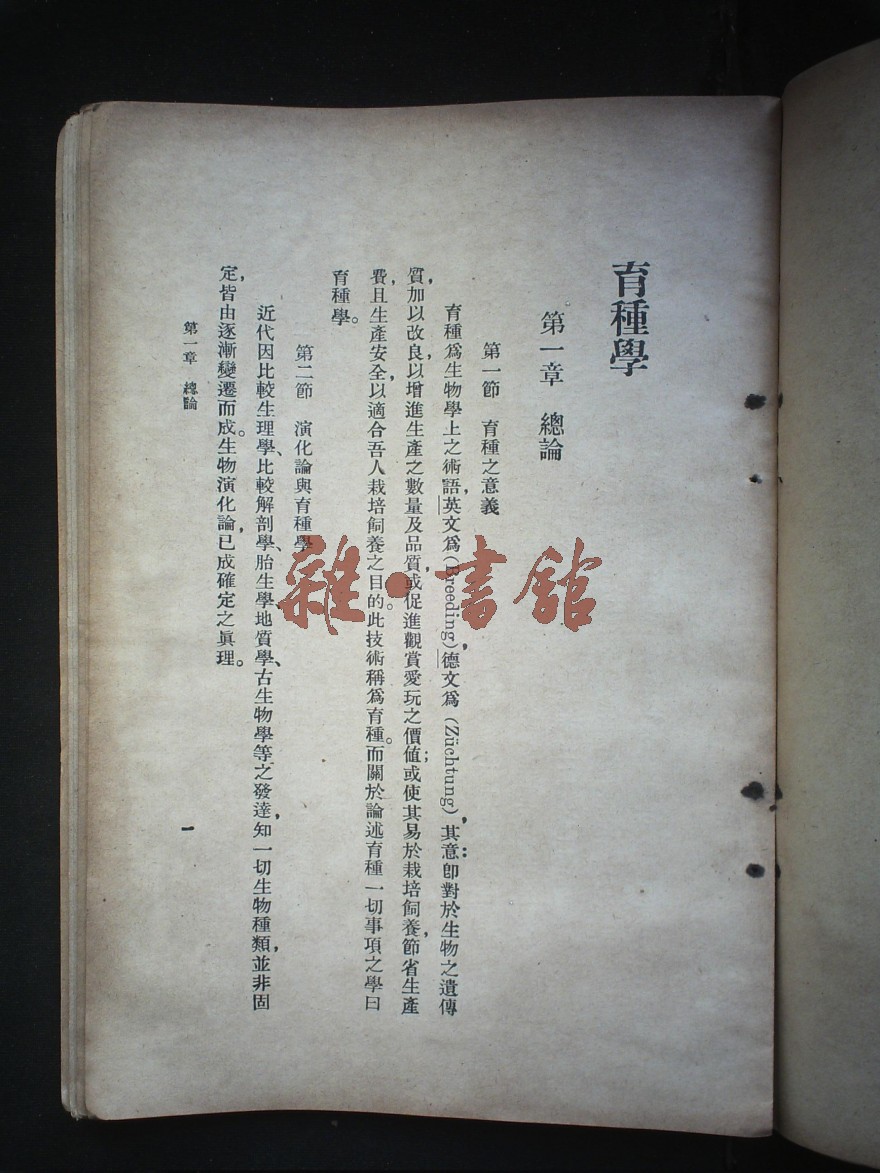 育種學
第一章 總論
第一節 育種之意義
育種爲生物學上之術語,英文爲(Breeding),德文爲(Züchtung),其意卽:對於生物之遺傳
質,加以改良,以增進生產之數量及品質,或促進觀賞愛玩之價値;或使其易於栽培飼養,節省生產
費,且生產安全,以適合吾人栽培飼養之目的。此技術稱爲育種。而關於論述育種一切事項之學曰
育種學。
第二節 演化論與育種學
近代因比較生理學、比較解剖學、胎生學、地質學、古生物學等之發達,知一切生物種類,並非固
定,皆由逐漸變遷而成。生物演化論,已成確定之眞理。
第一章 總論
一
雜·書館